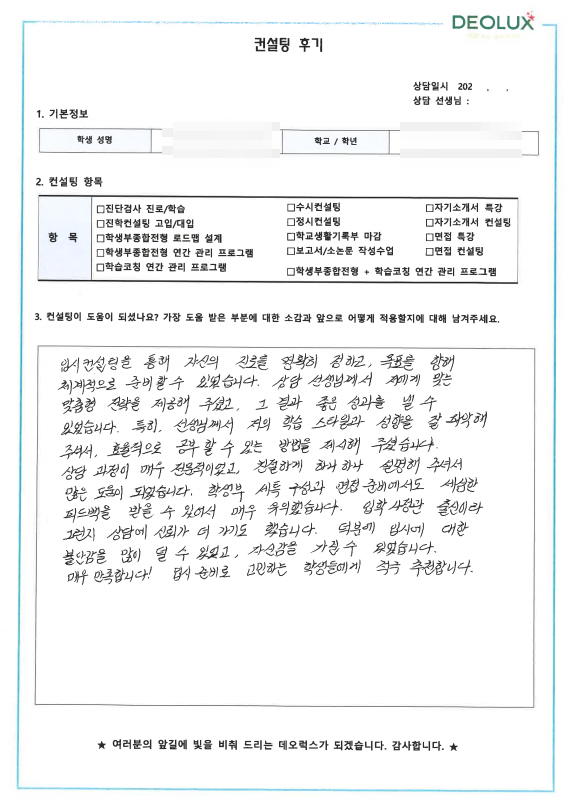 DEOLUX
컨설팅 후기
상담일시 202 . .
상담 선생님 :
1. 기본정보
학생 성명 학교 / 학년
2. 컨설팅 항목
항 목
□진단검사 진로/학습 □수시컨설팅 □자기소개서 특강
□진학컨설팅 고입/대입 □정시컨설팅 □자기소개서 컨설팅
□학생부종합전형 로드맵 설계 □학교생활기록부 마감 □면접 특강
□학생부종합전형 연간 관리 프로그램 □보고서/소논문 작성수업 □면접 컨설팅
□학습코칭 연간 관리 프로그램 □학생부종합전형 + 학습코칭 연간 관리 프로그램
3. 컨설팅이 도움이 되셨나요? 가장 도움 받은 부분에 대한 소감과 앞으로 어떻게 적용할지에 대해 남겨주세요.
입시컨설팅을 통해 자신의 진로를 명확히 정하고, 목표를 향해
체계적으로 준비할 수 있었습니다. 상담 선생님께서 저에게 맞는
맞춤형 전략을 제공해 주셨고, 그 결과 좋은 성과를 낼 수
있었습니다. 특히, 선생님께서 저의 학습 스타일과 성향을 잘 파악해
주셔서, 효율적으로 공부 할 수 있는 방법을 제시해 주셨습니다.
상담 과정이 매우 전문적이었고, 친절하게 하나 하나 설명해 주셔서
많은 도움이 되었습니다. 학생부 세특 구성과 면접 준비에서도 세심한
피드백을 받을 수 있어서 매우 유익했습니다. 입학 사정관 출신이라
그런지 상담에 신뢰가 더 가기도 했습니다. 덕분에 입시에 대한
불안감을 많이 덜 수 있었고, 자신감을 가질 수 있었습니다.
매우 만족합니다! 입시 준비로 고민하는 학생들에게 적극 추천합니다.
★ 여러분의 앞길에 빛을 비춰 드리는 데오럭스가 되겠습니다. 감사합니다. ★